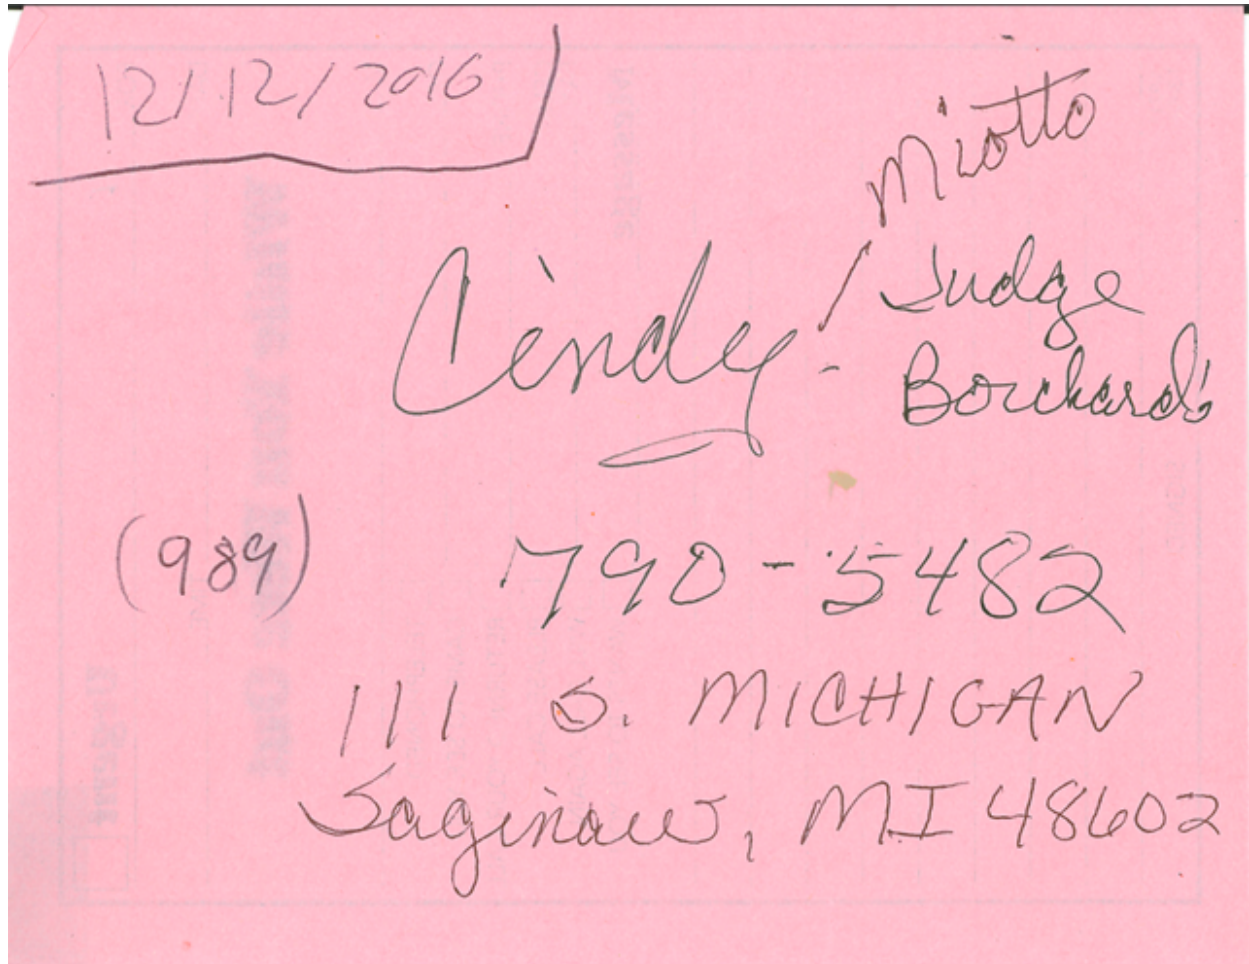 12/12/2016
Miotto
Cindy - / Judge
Borchard's
(989) 790-5482
111 S. MICHIGAN
Saginaw, MI 48602